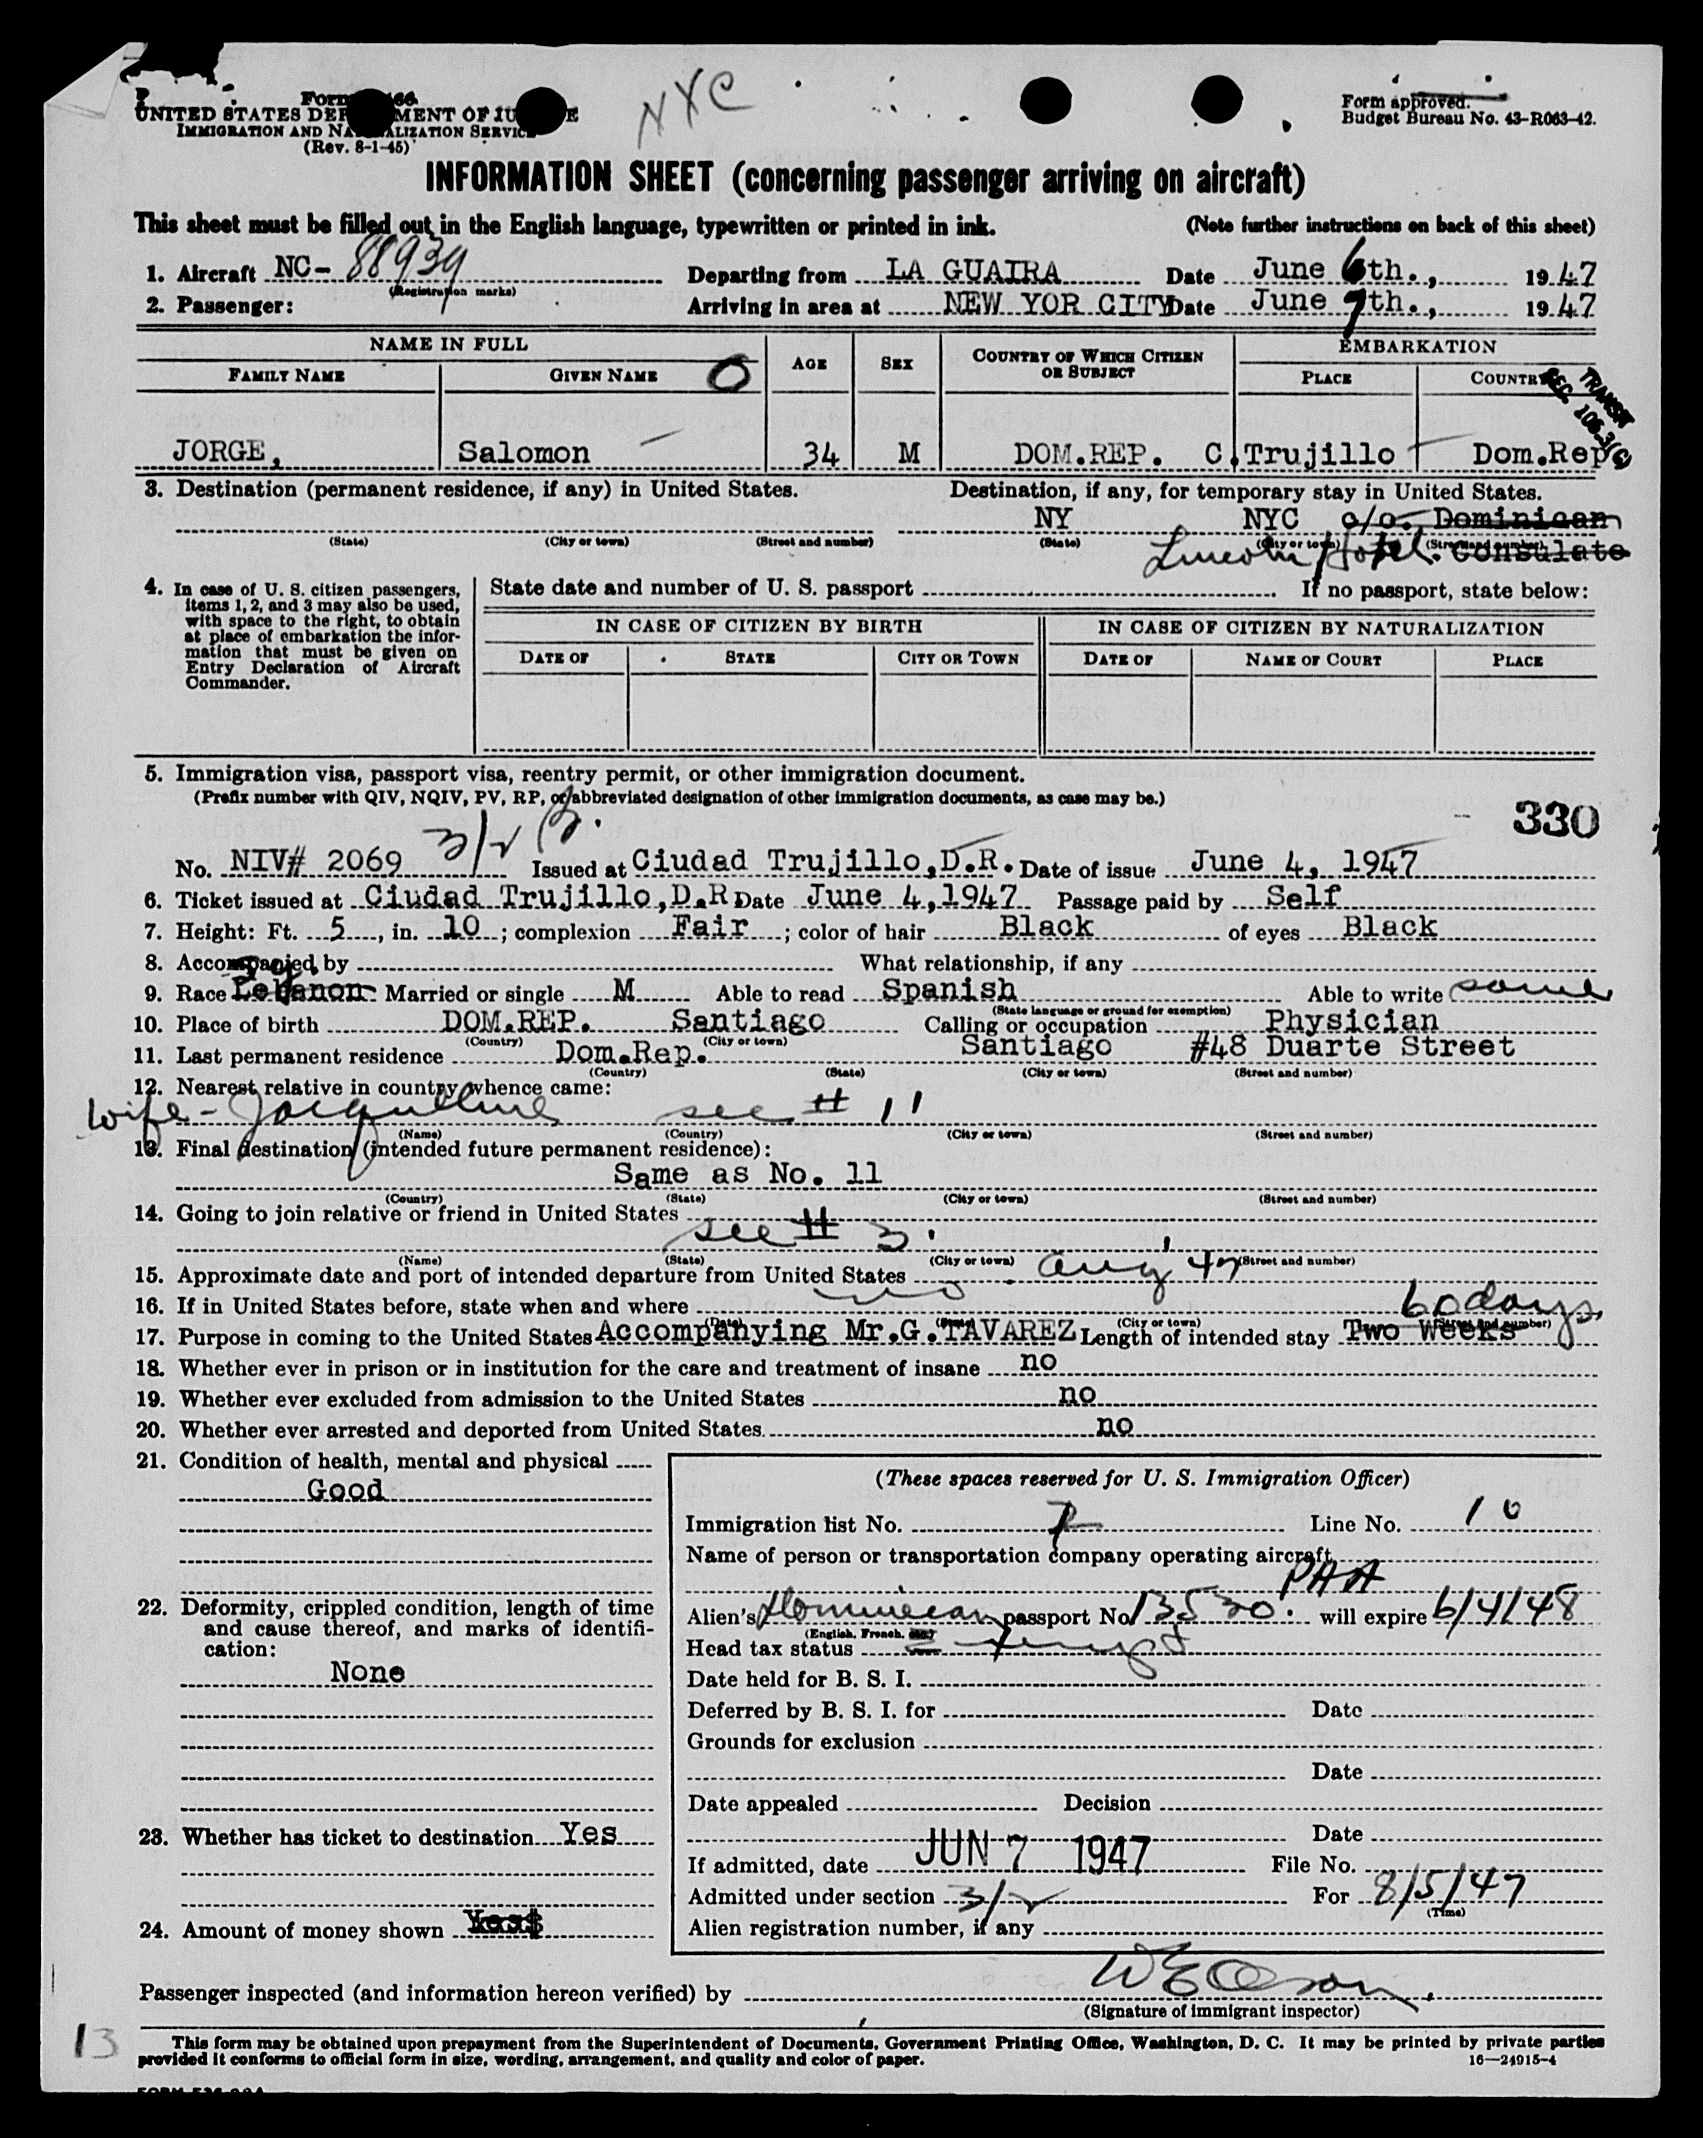 NYC
Form
UNITED STATES DEPARTMENT OF JUSTICE
IMMIGRATION AND NATURALIZATION SERVICE
(Rev. 8-1-45)
Form approved.
Budget Bureau No. 43-R063-42.
INFORMATION SHEET (concerning passenger arriving on aircraft)
This sheet must be filled out in the English language, typewritten or printed in ink. (Note further instructions on back of this sheet)
1. Aircraft NC- 88939 Departing from LA GUAIRA Date June 6th., 1947
(Registration marks)
2. Passenger: Arriving in area at NEW YOR CITY Date June 7th., 1947
NAME IN FULL AGE SEX COUNTRY OF WHICH CITIZEN OR SUBJECT EMBARKATION
FAMILY NAME GIVEN NAME O PLACE COUNTRY
TRANSIT
SEC. 106.3(c)
JORGE, Salomon 34 M DOM.REP. C.Trujillo Dom.Rep
3. Destination (permanent residence, if any) in United States. Destination, if any, for temporary stay in United States.
NY NYC c/o. Dominican
(State) (City or town) (Street and number) (State) (City or town) (Street and number)
Lincoln Hotel. Consulate
4. In case of U. S. citizen passengers, items 1, 2, and 3 may also be used, with space to the right, to obtain at place of embarkation the information that must be given on Entry Declaration of Aircraft Commander.
State date and number of U. S. passport If no passport, state below:
IN CASE OF CITIZEN BY BIRTH IN CASE OF CITIZEN BY NATURALIZATION
DATE OF STATE CITY OR TOWN DATE OF NAME OF COURT PLACE
5. Immigration visa, passport visa, reentry permit, or other immigration document.
(Prefix number with QIV, NQIV, PV, RP, or abbreviated designation of other immigration documents, as case may be.)
330
3/2
No. NIV# 2069 Issued at Ciudad Trujillo,D.R. Date of issue June 4, 1947
6. Ticket issued at Ciudad Trujillo,D.R Date June 4,1947 Passage paid by Self
7. Height: Ft. 5, in. 10; complexion Fair; color of hair Black of eyes Black
8. Accompanied by What relationship, if any
9. Race Lebanon Married or single M Able to read Spanish Able to write same
(State language or ground for exemption)
10. Place of birth DOM.REP. Santiago Calling or occupation Physician
(Country) (City or town)
11. Last permanent residence Dom.Rep. Santiago #48 Duarte Street
(Country) (State) (City or town) (Street and number)
12. Nearest relative in country whence came:
wife - Jacqueline see # 11
(Name) (Country) (City or town) (Street and number)
13. Final destination (intended future permanent residence):
Same as No. 11
(Country) (State) (City or town) (Street and number)
14. Going to join relative or friend in United States
see # 3.
(Name) (State) (City or town) (Street and number)
15. Approximate date and port of intended departure from United States Aug '47
16. If in United States before, state when and where no
(Date) (State) (City or town) (Street and number)
60 days
17. Purpose in coming to the United States Accompanying Mr.G.TAVAREZ Length of intended stay Two Weeks
18. Whether ever in prison or in institution for the care and treatment of insane no
19. Whether ever excluded from admission to the United States no
20. Whether ever arrested and deported from United States. no
21. Condition of health, mental and physical
Good
22. Deformity, crippled condition, length of time and cause thereof, and marks of identification:
None
23. Whether has ticket to destination Yes
24. Amount of money shown Yes$
(These spaces reserved for U. S. Immigration Officer)
Immigration list No. 7 Line No. 10
Name of person or transportation company operating aircraft
PAA
Alien's Dominican passport No. 13530. will expire 6/4/48
(English, French, etc.)
Head tax status Exempt
Date held for B. S. I.
Deferred by B. S. I. for Date
Grounds for exclusion
Date
Date appealed Decision
Date
If admitted, date JUN 7 1947 File No.
Admitted under section 3/2 For 8/5/47
(Time)
Alien registration number, if any
Passenger inspected (and information hereon verified) by
(Signature of immigrant inspector)
13
This form may be obtained upon prepayment from the Superintendent of Documents, Government Printing Office, Washington, D. C. It may be printed by private parties
provided it conforms to official form in size, wording, arrangement, and quality and color of paper. 16—24915-4